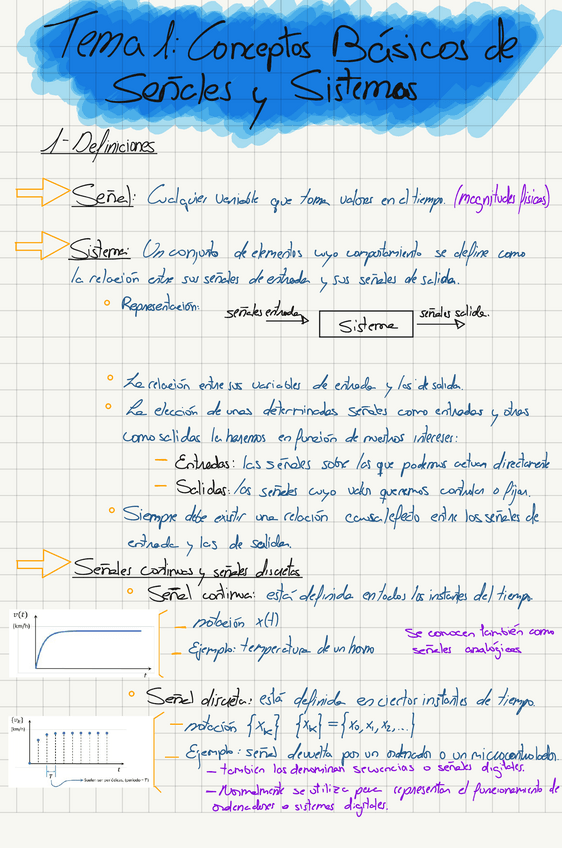 Tema 1: Conceptos Básicos de
Señales y Sistemas
1- Definiciones
Señal: Cualquier variable que toma valores en el tiempo. (magnitudes físicas)
Sistema: Un conjunto de elementos cuyo comportamiento se define como
la relación entre sus señales de entrada y sus señales de salida.
Representación:
señales entrada
Sistema
señales salida.
La relación entre sus variables de entrada y las de salida.
La elección de unas determinadas señales como entradas y otras
como salidas la haremos en función de nuestros intereses:
— Entradas: las señales sobre las que podemos actuar directamente
— Salidas: las señales cuyo valor queremos controlar o fijar.
Siempre debe existir una relación causa/efecto entre las señales de
entrada y las de salida.
Señales continuas y señales discretas
Señal continua: está definida en todos los instantes del tiempo.
v(t)
(km/h)
t
— notación x(t)
— Ejemplo: temperatura de un horno
Se conocen también como
señales analógicas
Señal discreta: está definida en ciertos instantes de tiempo.
{vₖ}
(km/h)
T
t
Suelen ser periódicas (período = T)
— notación {xₖ} {xₖ} = {x₀, x₁, x₂, ...}
— Ejemplo: señal devuelta por un ordenador o un microcontrolador.
— también las denominan secuencias o señales digitales.
— Normalmente se utiliza para representar el funcionamiento de
ordenadores o sistemas digitales.